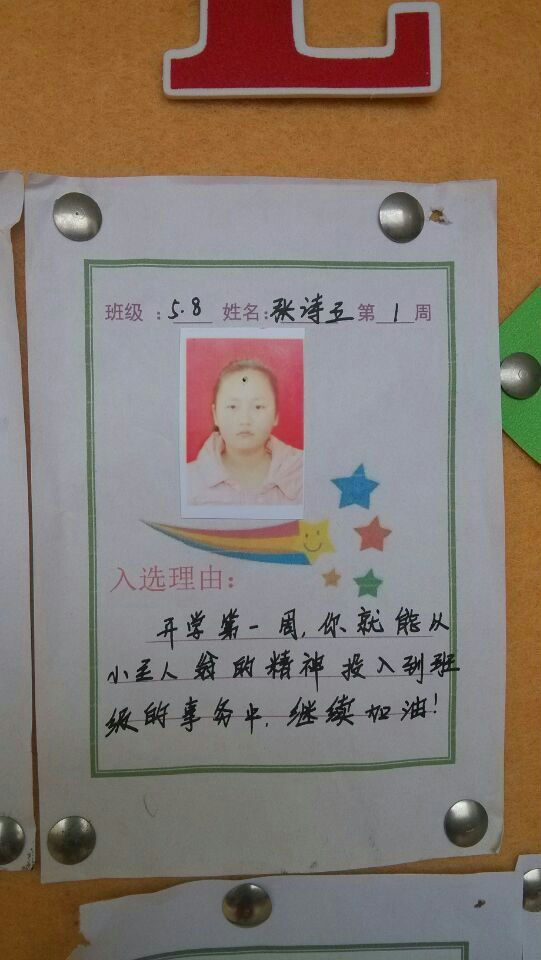 班级：5.8 姓名：张诗五 第 1 周
入选理由：
开学第一周，你就能从
小主人翁的精神投入到班
级的事务中，继续加油！